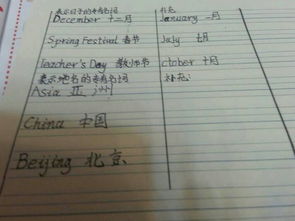 表示日子的专有名词
December 十二月
Spring Festival 春节
Teacher's Day 教师节
表示地名的专有名词
Asia 亚洲
China 中国
Beijing 北京
补充
January 一月
July 七月
ctober 十月
补充: